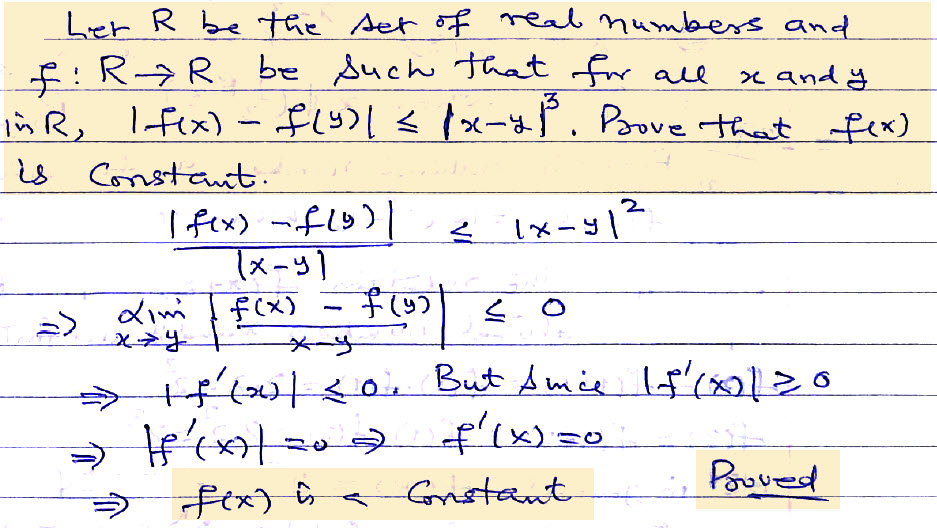 Let R be the set of real numbers and
f : R → R be such that for all x and y
in R, |f(x) - f(y)| ≤ |x-y|³. Prove that f(x)
is Constant.
|f(x) - f(y)| / |x-y| ≤ |x-y|²
⇒ Lim x→y |f(x) - f(y) / x-y| ≤ 0
⇒ |f'(x)| ≤ 0. But Since |f'(x)| ≥ 0
⇒ |f'(x)| = 0 ⇒ f'(x) = 0
⇒ f(x) is a Constant Proved